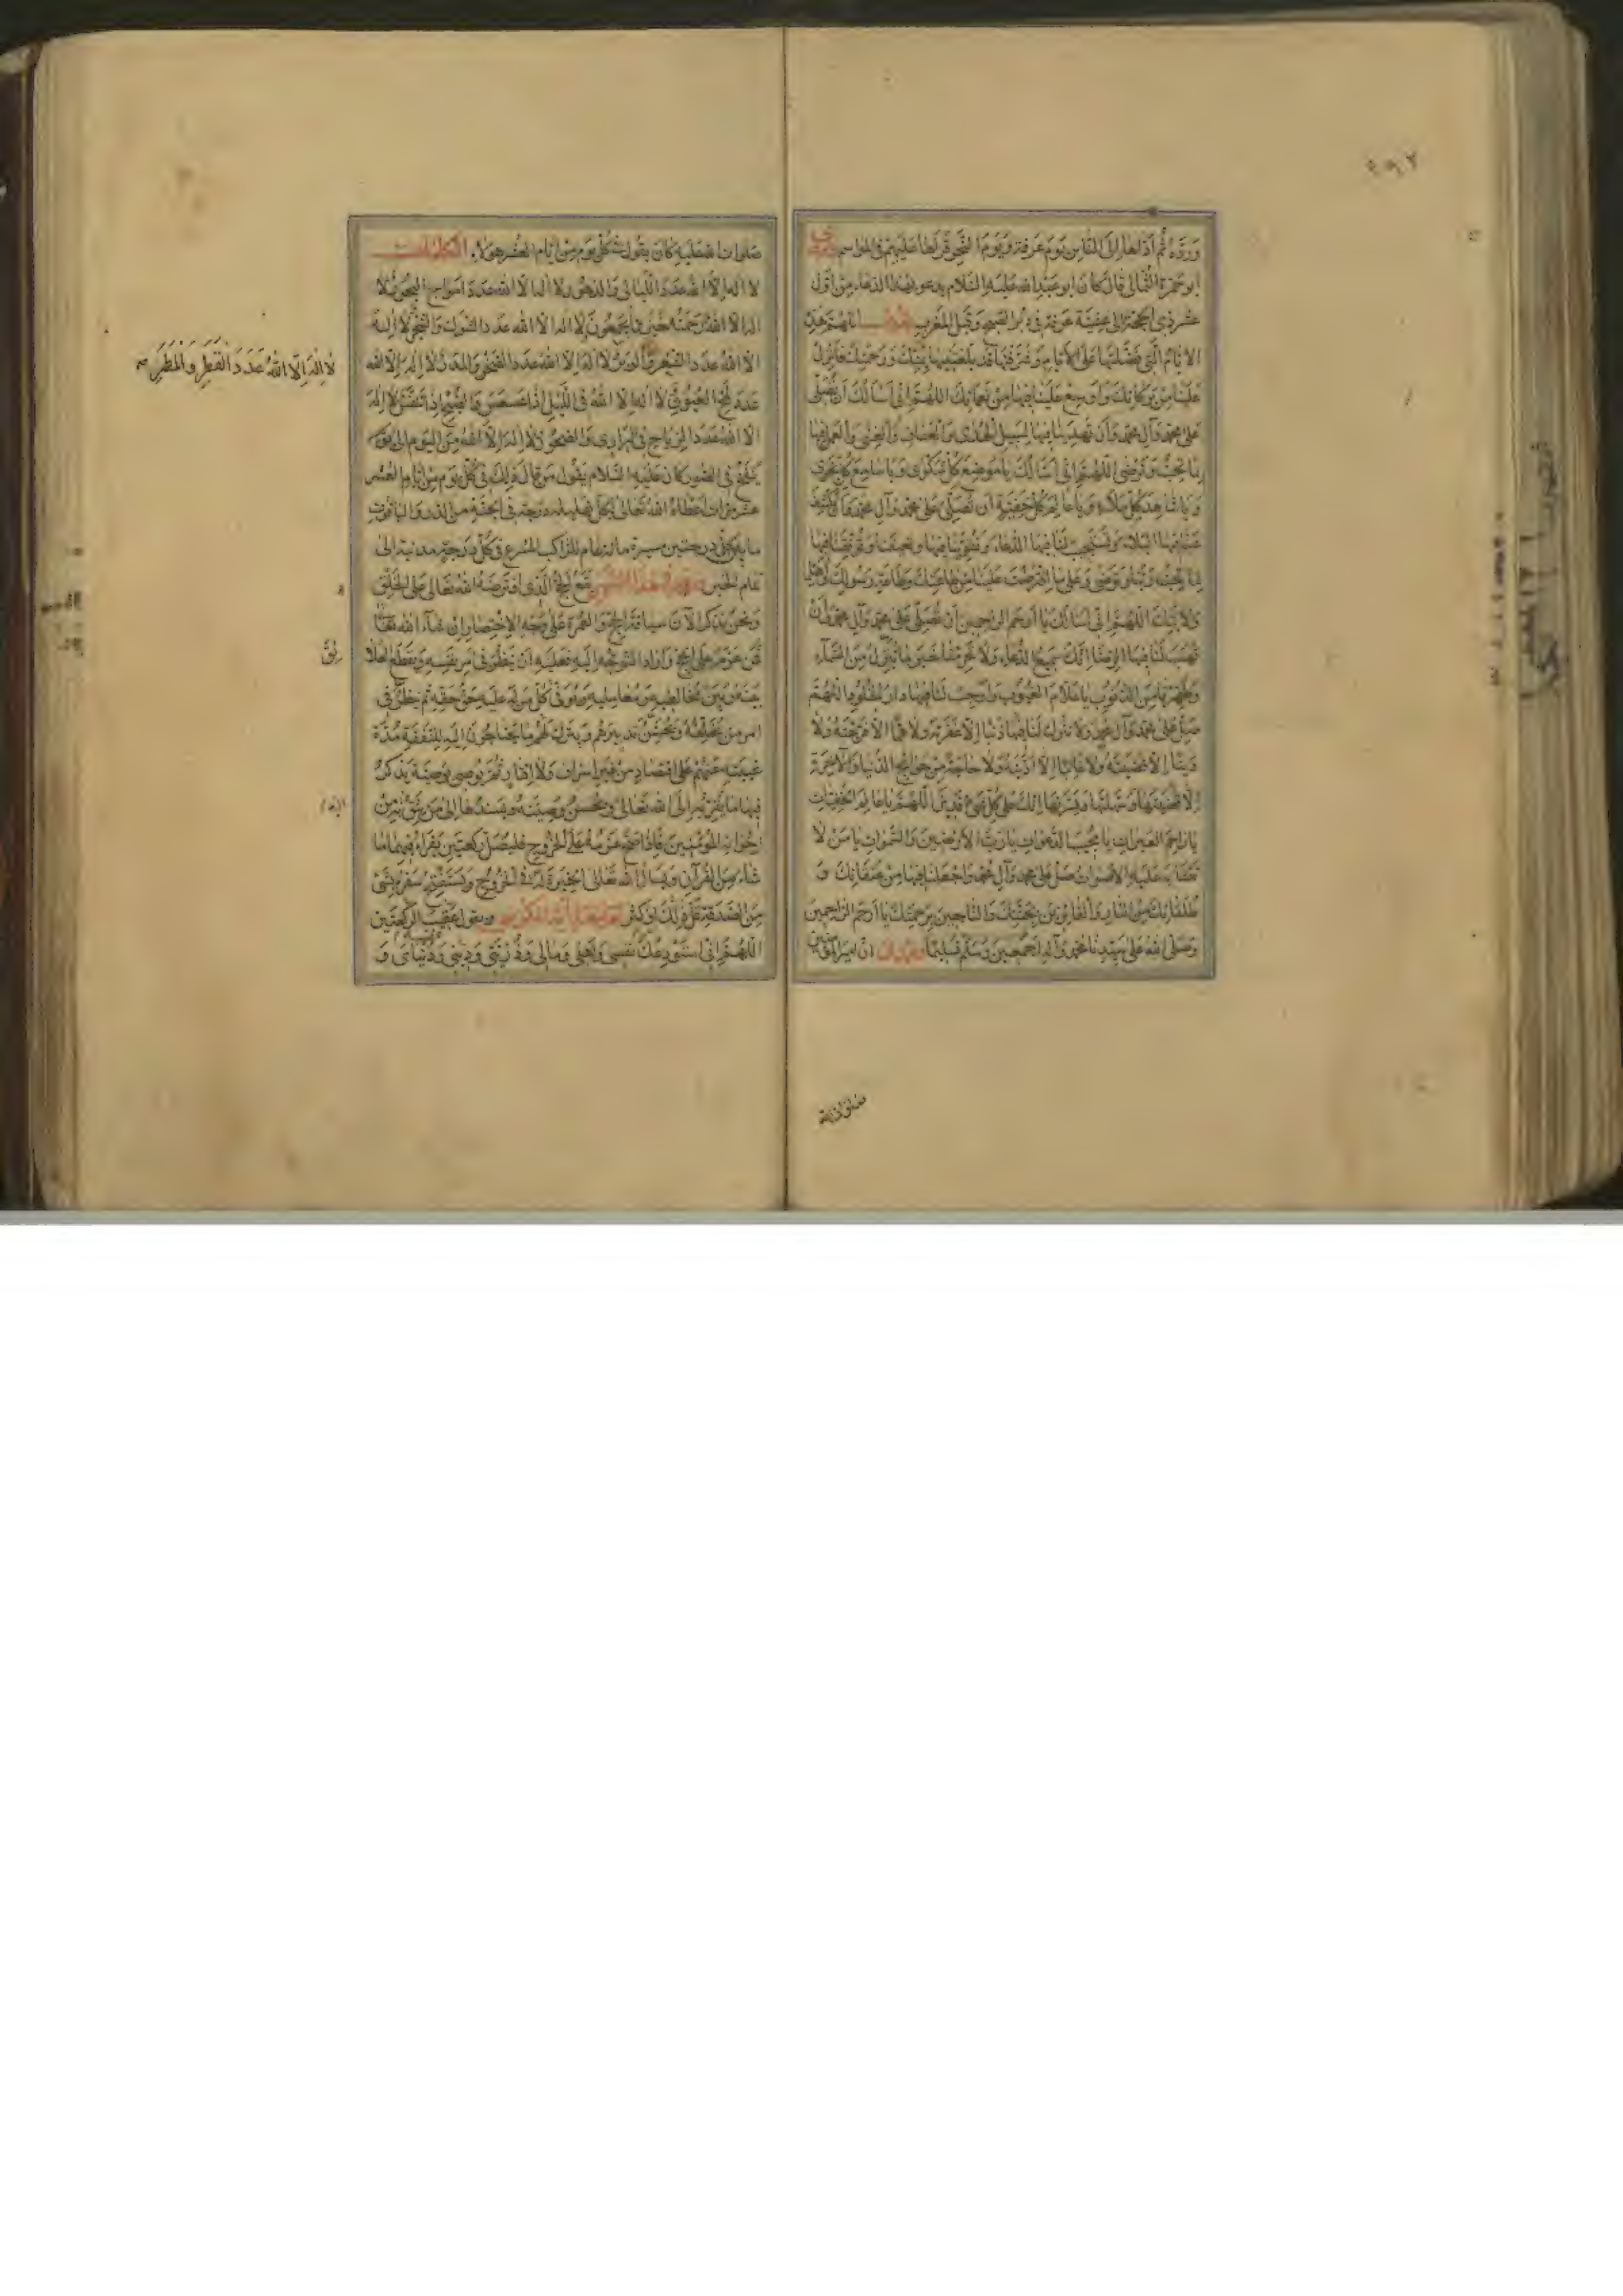 وردّه ثم اذ لها الى الناس يوم عرفة ويوم النحر قرأها عليهم في المواسم
ابو حمزة الثمالي قال كان ابو عبد الله عليه السلام يدعو بهذا الدعاء من اول
عشر ذي الحجة الى عشية عرفة في دبر الصبح وقبل المغرب يقول اللهم هذه
الايام التي فضلتها على الايام وشرفتها قد بلغتنيها بمنك ورحمتك فانزل
علينا من بركاتك واوسع علينا فيها من نعمائك اللهم اني اسألك ان تصلي
على محمد وآل محمد وان تهدينا فيها لسبيل الهدى والعفاف والغنى والعمل فيها
بما تحب وترضى اللهم اني اسألك يا موضع كل شكوى ويا سامع كل نجوى
ويا شاهد كل ملاء ويا عالم كل خفية ان تصلي على محمد وآل محمد وان تكشف
عنا فيها البلاء وتستجيب لنا فيها الدعاء وتقوينا فيها وتعيننا وتوفقنا فيها
لما تحب ربنا وترضى وعلى ما افترضت علينا من طاعتك وطاعة رسولك واهل
ولايتك اللهم اني اسألك يا ارحم الراحمين ان تصلي على محمد وآل محمد وان
تهب لنا فيها الرضا انك سميع الدعاء ولا تحرمنا خير ما تنزل من السماء
وطهرنا من الذنوب يا علام الغيوب واوجب لنا فيها دار الخلود اللهم
صل على محمد وآل محمد ولا تترك لنا فيها ذنبا الا غفرته ولا هما الا فرجته ولا
دينا الا قضيته ولا غائبا الا ادنيته ولا حاجة من حوائج الدنيا والآخرة
الا سهلتها ويسرتها انك على كل شيء قدير اللهم يا عالم الخفيات
يا راحم العبرات يا مجيب الدعوات يا رب الارضين والسموات يا من لا
تتشابه عليه الاصوات صل على محمد وآل محمد واجعلنا فيها من عتقائك و
طلقائك من النار والفائزين بجنتك والناجين برحمتك يا ارحم الراحمين
وصلى الله على سيدنا محمد وآله اجمعين وسلم تسليما وروي ان امير المؤمنين
صلوات الله عليه كان يقول في كل يوم من ايام العشر هؤلاء الكلمات
لا اله الا الله عدد الليالي والدهور لا اله الا الله عدد امواج البحور لا
اله الا الله ورحمته خير مما يجمعون لا اله الا الله عدد الشوك والشجر لا اله
الا الله عدد الشعر والوبر لا اله الا الله عدد الحجر والمدر لا اله الا الله
عدد لمح العيون لا اله الا الله في الليل اذا عسعس والصبح اذا تنفس لا اله
الا الله عدد الرياح في البراري والصخور لا اله الا الله من اليوم الى يوم
ينفخ في الصور كان عليه السلام يقول من قال ذلك في كل يوم من ايام العشر
عشر مرات اعطاه الله تعالى بكل تهليلة درجة في الجنة من الدر والياقوت
ما بين كل درجتين مسيرة مائة عام للراكب المسرع في كل درجة مدينة الى
تمام الخبر وفي هذا الشهر يقع الحج الذي افترضه الله تعالى على الخلق
ونحن نذكر الآن سياقة الحج والعمرة على وجه الاختصار ان شاء الله تعالى
فمن عزم على الحج واراد التوجه اليه فعليه ان ينظر في امر نفسه ويقطع العلائق
بينه وبين مخالطيه ومعامليه ويوفي كل من له عليه حق حقه ثم ينظر في
امر من يخلفه ويحسن تدبيرهم ويترك لهم ما يحتاجون اليه للنفقة مدة
غيبته عنهم على اقتصاد من غير اسراف ولا اقتار ثم يوصي بوصية يذكر
فيها ما يقربه الى الله تعالى ويحسن وصيته ويسندها الى من يثق به من
اخوانه المؤمنين فاذا صح عزمه على الخروج فليصل ركعتين يقرأ فيهما ما
شاء من القرآن ويسأل الله تعالى الخيرة له في الخروج ويستفتح سفره بشيء
من الصدقة قل ذلك او كثر ثم ليقرأ آية الكرسي ويقول عقيب الركعتين
اللهم اني استودعك نفسي واهلي ومالي وذريتي وديني ودنياي و
لا اله الا الله عدد القطر والمطر صح
ئق